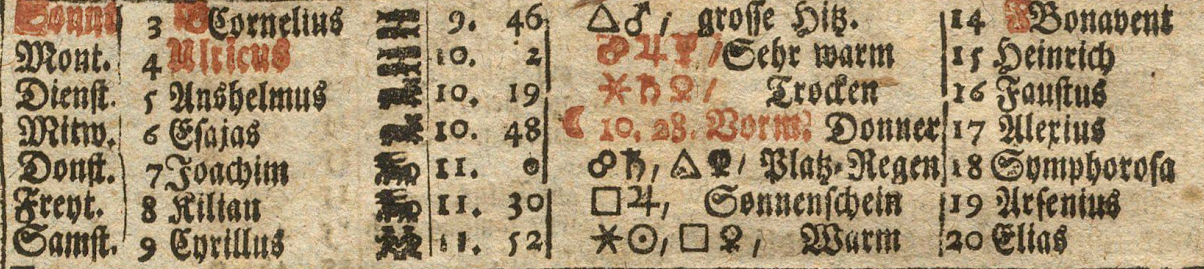 Sonnt 3 Cornelius 9. 46 △♂, grosse Hitz. 14 Bonavent
Mont. 4 Ulricus 10. 2 ☍♃☿/ Sehr warm 15 Heinrich
Dienst. 5 Anshelmus 10. 19 ⚹♄♀/ Trocken 16 Faustus
Mitw. 6 Esajas 10. 48 ☾ 10. 28. Vorm. Donner 17 Alexius
Donst. 7 Joachim 11. 0 ☍♄, △☿/ Platz-Regen 18 Symphorosa
Freyt. 8 Kilian 11. 30 □♃, Sonnenschein 19 Arsenius
Samst. 9 Cyrillus 11. 52 ⚹☉, □♀, Warm 20 Elias